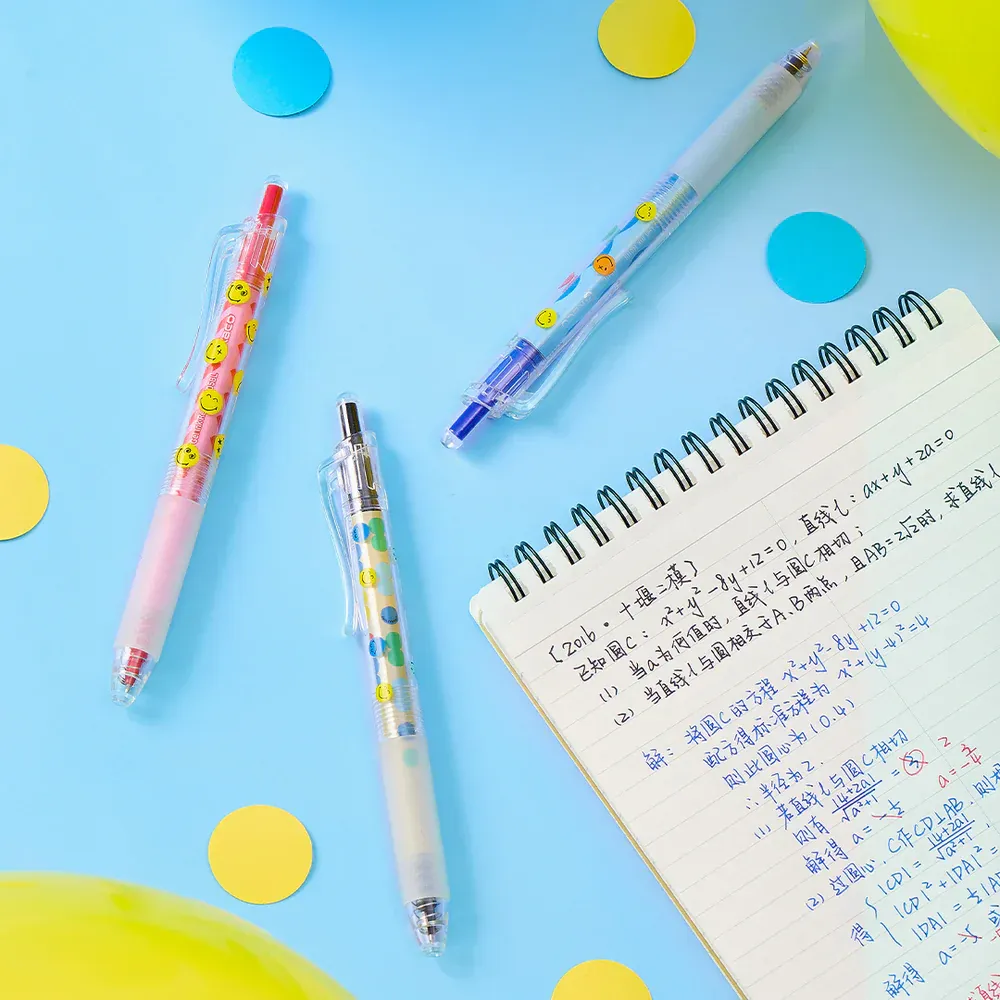 [2016·十堰二模}
已知圆C：x²+y²-8y+12=0，直线l：ax+y+2a=0
(1) 当a为何值时，直线l与圆C相切；
(2) 当直线l与圆相交于A.B两点，且AB=2√2时，求直线l
解：将圆C的方程 x²+y²-8y+12=0
配方得标准方程为 x²+(y-4)²=4
则此圆心为(0.4)
∴半径为2.
(1) 若直线l与圆C相切
则有 |4+2a|/√a²+1 = 3 2
解得 a= a=-3/4
(2) 过圆心.C作CD⊥AB.则
|CD| = |4+2a|/√a²+1
得 |CD|²+|DA|²=
|DA| = ½|A
解得 a=